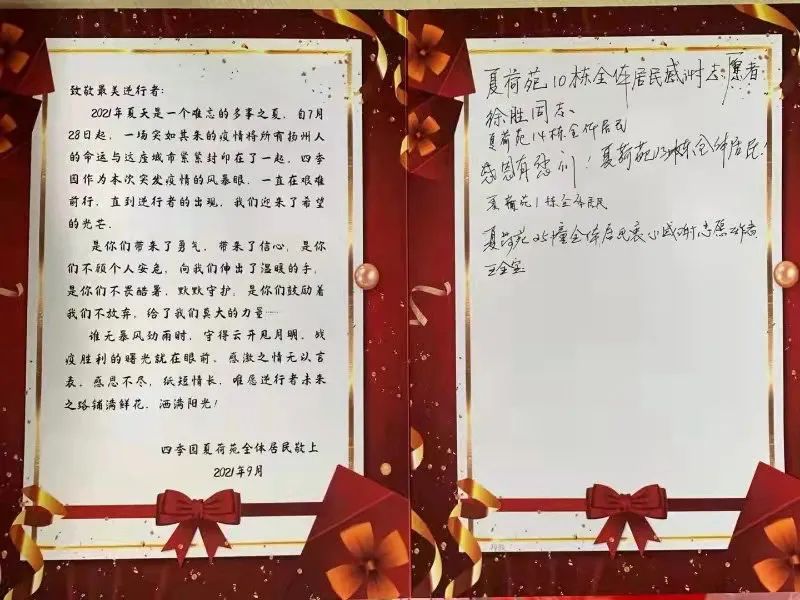 致敬最美逆行者：
2021年夏天是一个难忘的多事之夏，自7月
28日起，一场突如其来的疫情将所有扬州人
的命运与这座城市紧紧封印在了一起，四季
园作为本次突发疫情的风暴眼，一直在艰难
前行，直到逆行者的出现，我们迎来了希望
的光芒．
是你们带来了勇气，带来了信心，是你
们不顾个人安危，向我们伸出了温暖的手，
是你们不畏酷暑，默默守护，是你们鼓励着
我们不放弃，给了我们莫大的力量……
谁无暴风劲雨时，守得云开见月明，战
疫胜利的曙光就在眼前，感激之情无以言
表，感恩不尽，纸短情长，唯愿逆行者未来
之路铺满鲜花，洒满阳光！
四季园夏荷苑全体居民敬上
2021年9月
夏荷苑10栋全体居民感谢志愿者
徐胜同志、
夏荷苑14栋全体居民
感恩有您们！夏荷苑13栋全体居民！
夏荷苑1栋全体居民
夏荷苑25幢全体居民衷心感谢志愿工作者
王全宝